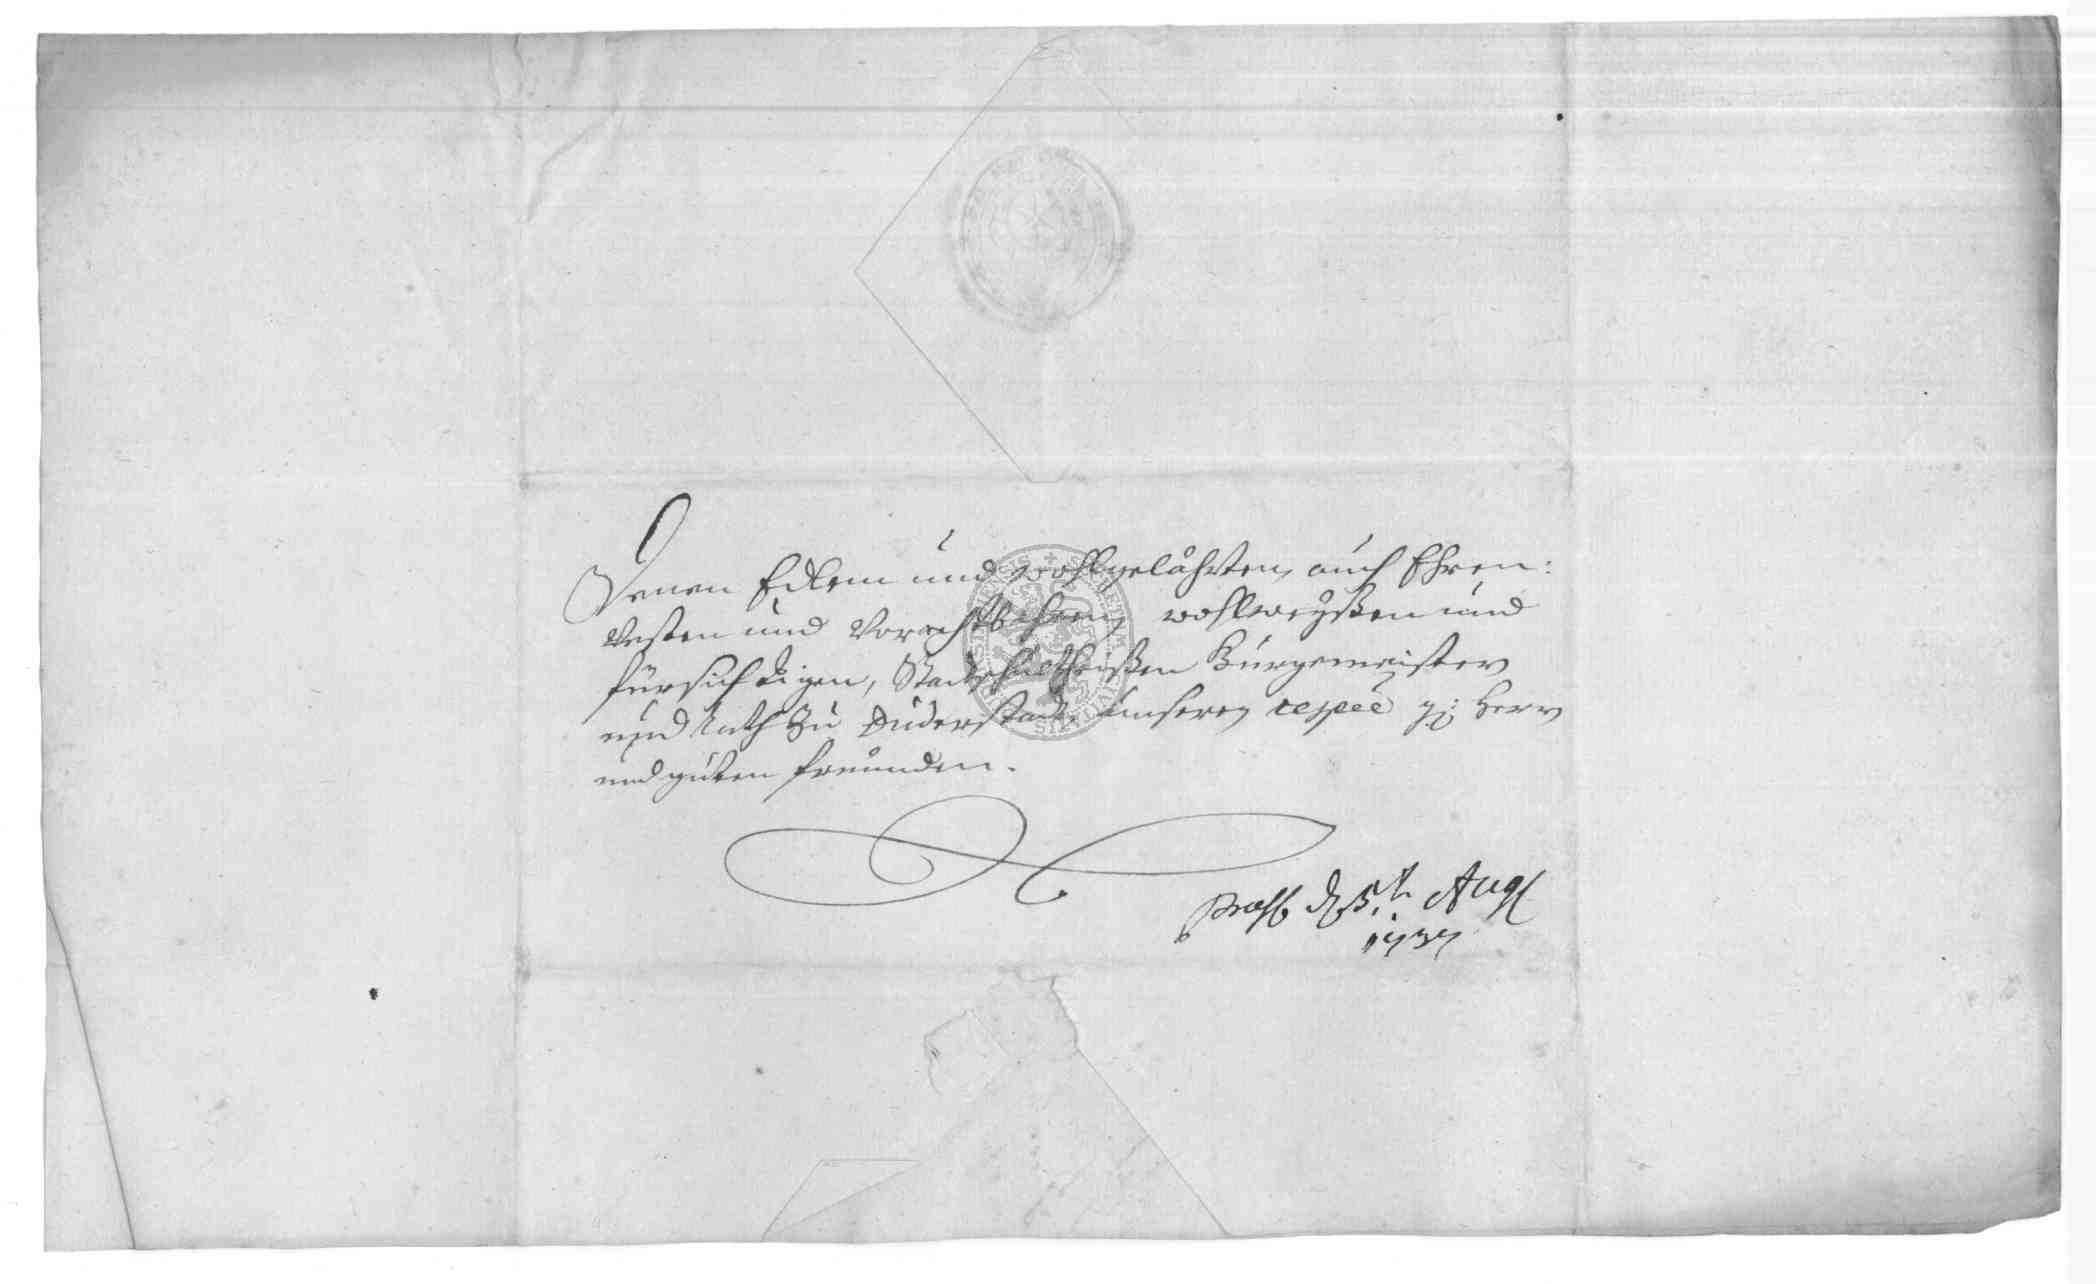 Denen Edlen und wohlgelåhrten, auch Ehren:
vesten und Vorachtbahren, wohlweyßen und
fürsichtigen, Stadtschultheißen Bürgemeister
und Rath zu Duderstadt, unseren respeē gg: Herrn
und guten freunden.
den 5.ten Aug
1737